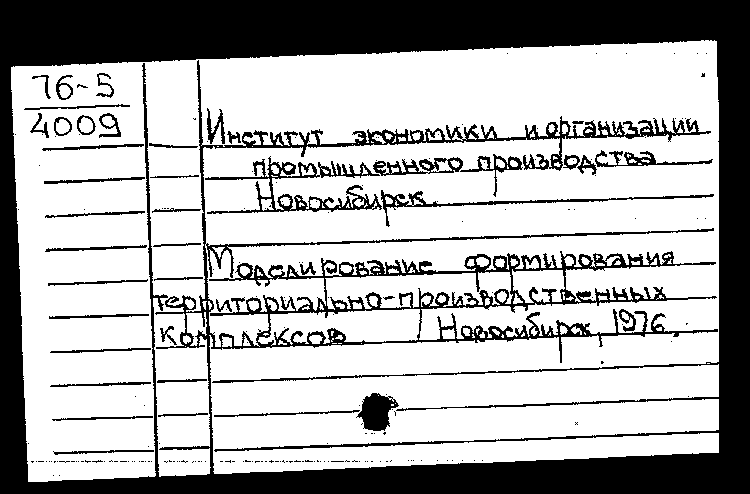 76-5
4009
Институт экономики и организации
промышленного производства
Новосибирск.
Моделирование формирования
территориально-производственных
комплексов. Новосибирск, 1976.